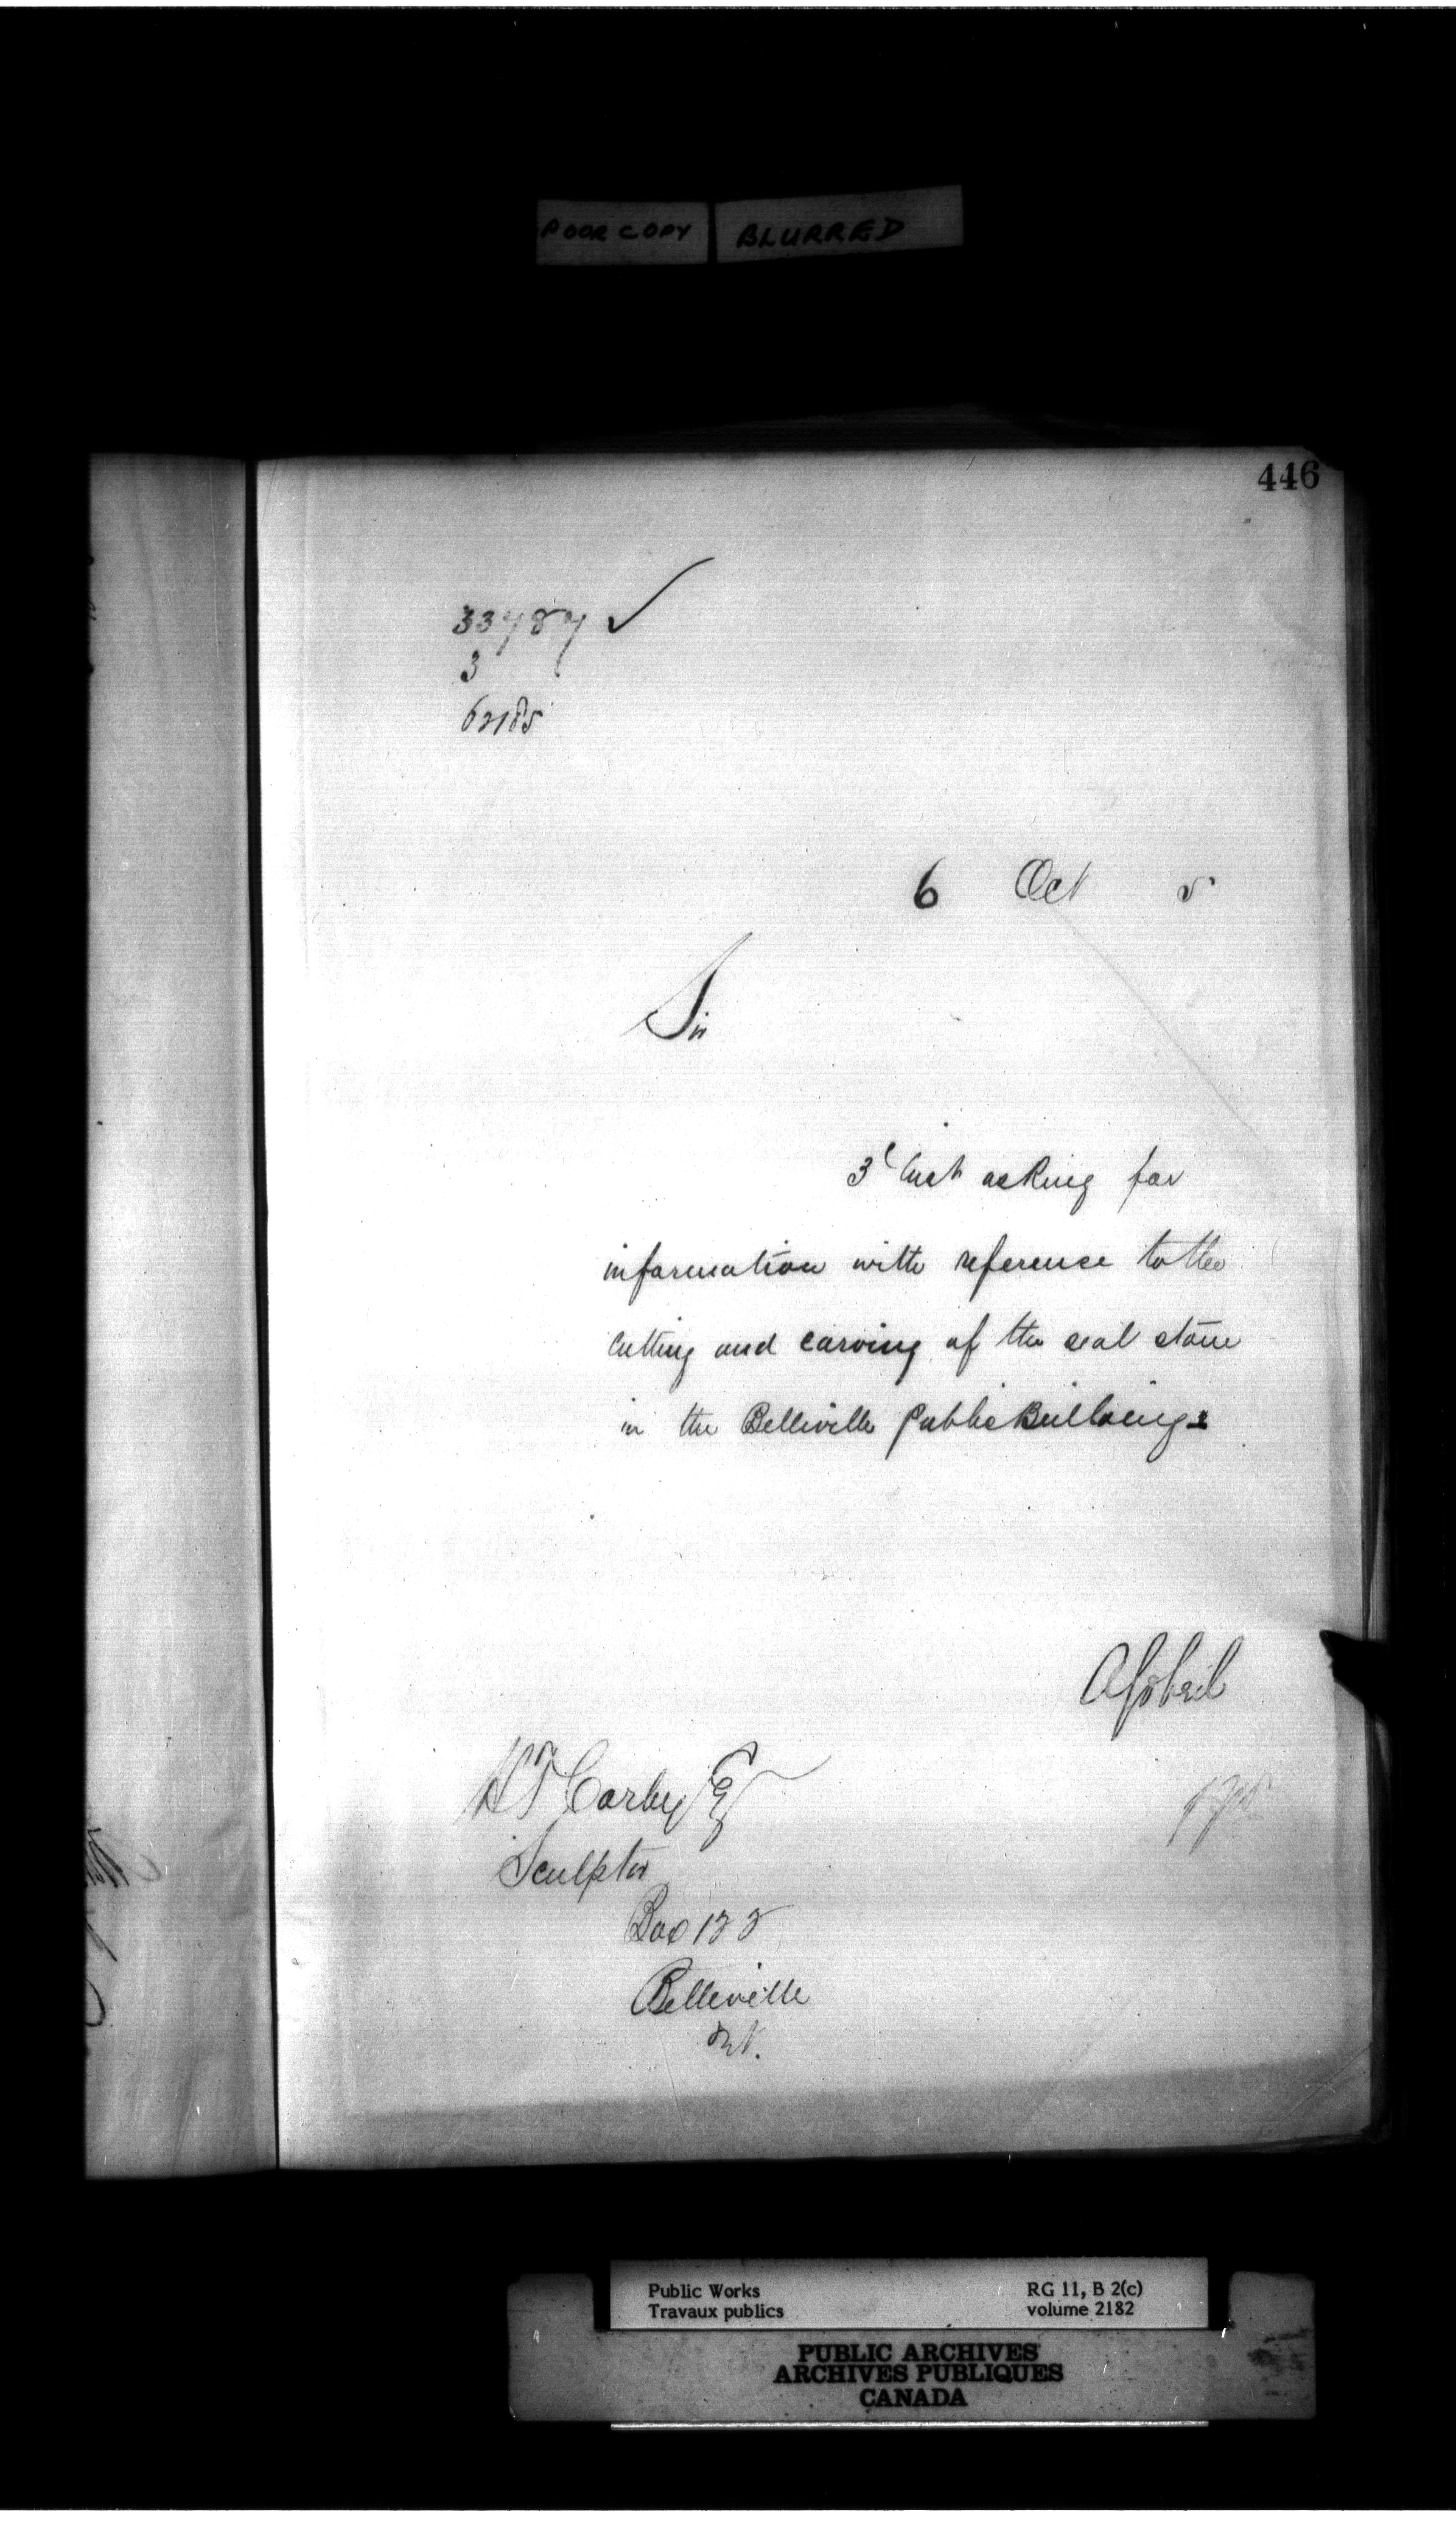 POOR COPY BLURRED
446
33787 ✓
3
62185
6 Oct 5
Sir
3d Inst asking for
information with reference to the
cutting and carving of the seal stone
in the Belleville Public Buildings
A Gobeil
Corby Esq
Sculptor
Box 122
Belleville
Ont.
Public Works RG 11, B 2(c)
Travaux publics volume 2182
PUBLIC ARCHIVES
ARCHIVES PUBLIQUES
CANADA